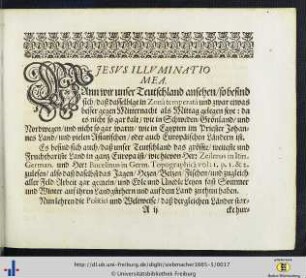 JESVS ILLVMINATIO
MEA.
Wann wir unser Teutschland ansehen, so befind
sich, daß dasselbige in Zona temperata und zwar etwas
näher gegen Mitternacht als Mittag gelegen sey: da
es nicht so gar kalt, wie in Schweden Grönland, und
Nordwegen, und nicht so gar warm, wie in Egypten im Priester Johan-
nes Land, und vielen Asiatischen, oder auch Europäischen Ländern ist.
Es befind sich auch, daß unser Teutschland das gröste, weiteste und
Fruchtbariste Land in gantz Europa ist: wie hievon Herr Zeilerus in Itin.
German. und Herr Bucelinus in Germ. Topographicâ vol. 1. p. 1. &
zulesen, als daß daselbst das Jagen, Beizen, Fischen, und zugleich
aller Feld Arbeit gar gemein, und Edle und Unedle Leute fast Sommer
und Winter auff ihren Landgüthern und auff dem Land
Nun lehren die Politici und Weltweise, daß dergleichen Länder
A ij
http://dl.ub.uni-freiburg.de/diglit/siebmacher1605-3/0017
© Universitätsbibliothek Freiburg